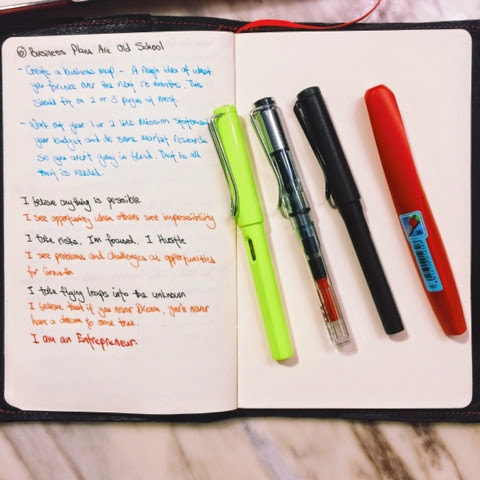 ⑥ Business Plans Are Old School
- Create a business map - A rough idea of what
you foresee over the next 18 months. This
should try on 2 or 3 pages at most.
- Work out your 1 or 2 line Mission statement,
your budget and do some market research
so you aren't going in blind. That is all
that is needed.
I believe anything is possible
I see opportunity when others see impossibility
I take risks. I'm focused. I Hustle
I see problems and challenges as opportunities
for Growth
I take flying leaps into the unknown
I believe that if you never Dream, you'll never
have a dream to come true.
I am an Entrepreneur.